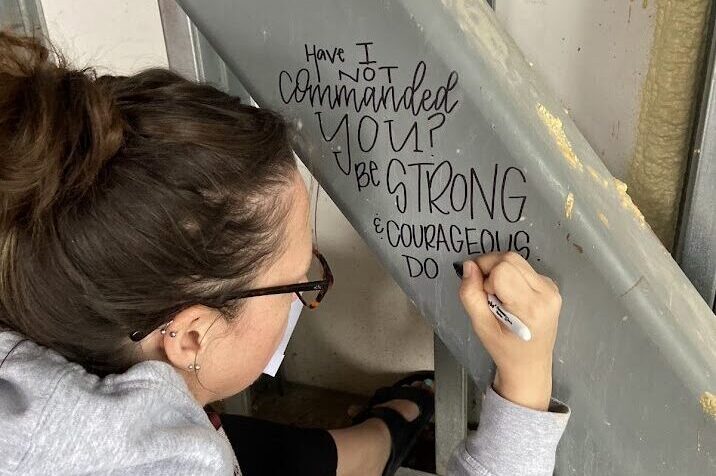 Have I
NOT
commanded
YOU?
Be STRONG
& COURAGEOUS.
DO